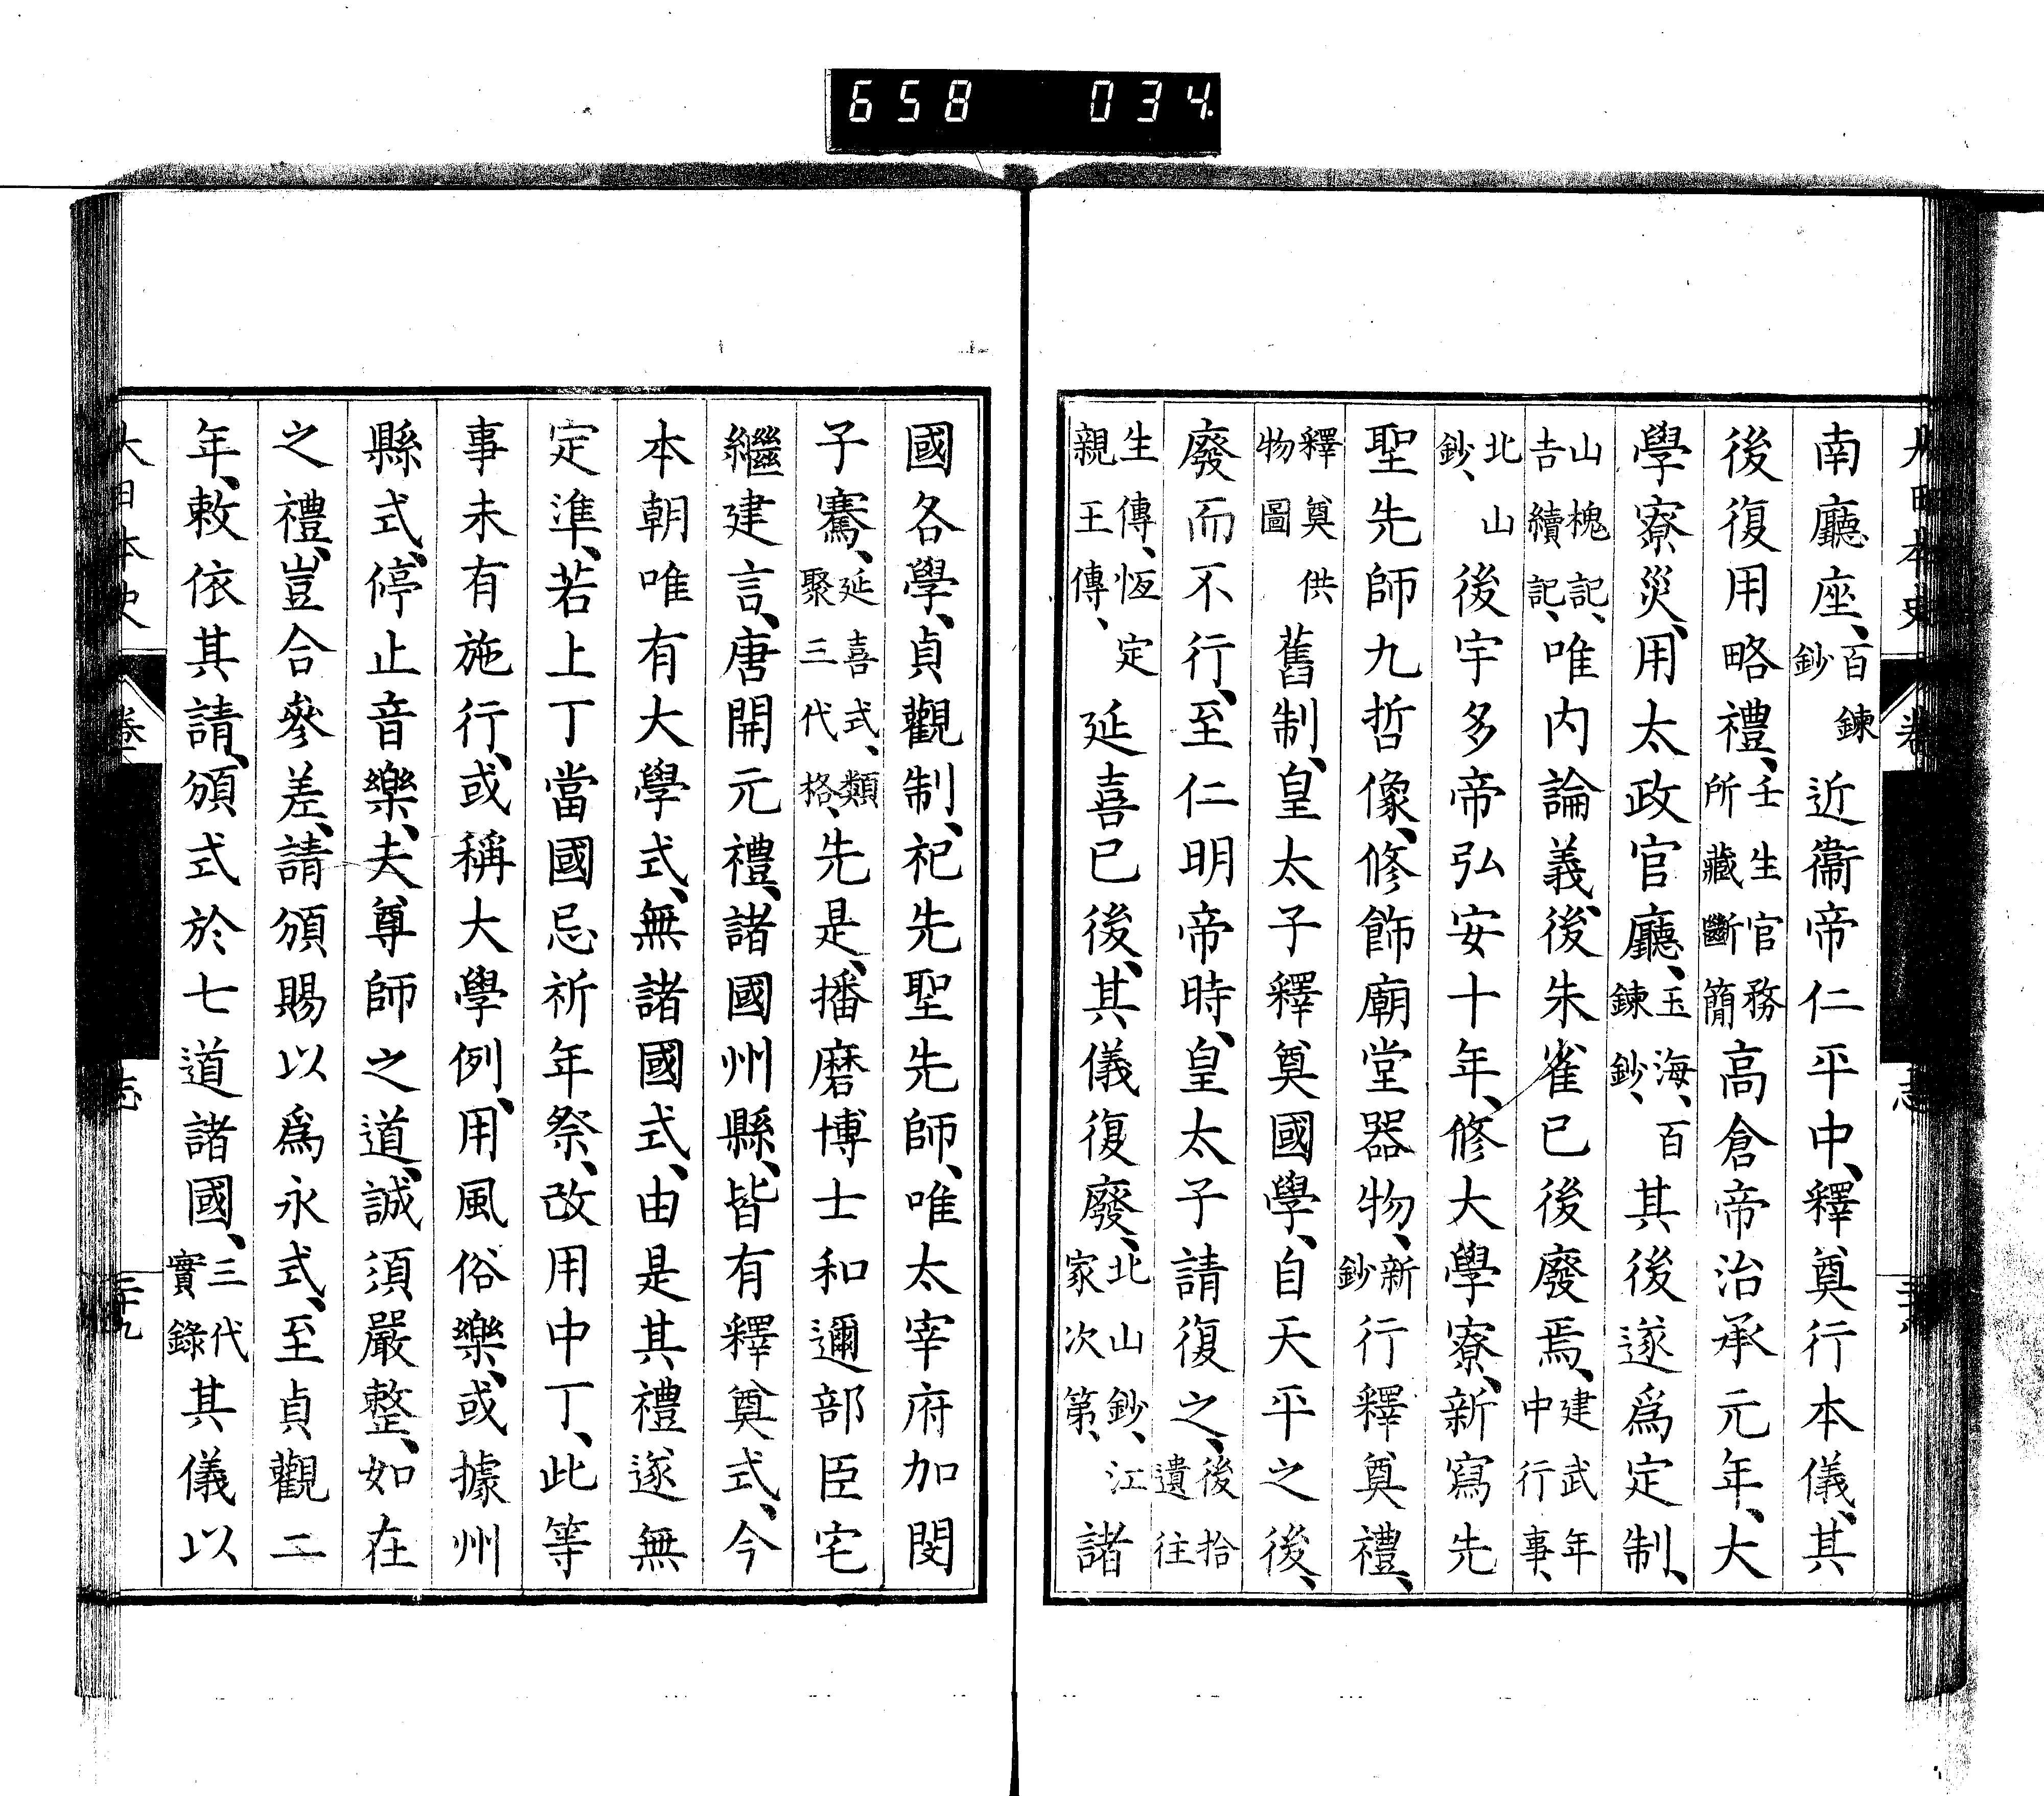 658 034
南廳座、百鍊鈔近衞帝仁平中、釋奠行本儀、其
後復用略禮、壬生官務所藏斷簡高倉帝治承元年、大
學寮災、用太政官廳、玉海、百鍊鈔、其後遂爲定制、
山槐記、吉續記、唯內論義、後朱雀已後廢焉、建武年中行事、
北山鈔、後宇多帝弘安十年、修大學寮、新寫先
聖先師九哲像、修飾廟堂器物、新鈔行釋奠禮、
釋奠供物圖舊制、皇太子釋奠國學、自天平之後、
廢而不行、至仁明帝時、皇太子請復之、後拾遺往
生傳、恆定親王傳、延喜已後、其儀復廢、北山鈔、江家次第、諸
國各學、貞觀制、祀先聖先師、唯太宰府加閔
子騫、延喜式、類聚三代格、先是、播磨博士和邇部臣宅
繼建言、唐開元禮、諸國州縣、皆有釋奠式、今
本朝唯有大學式、無諸國式、由是其禮遂無
定準、若上丁當國忌祈年祭、改用中丁、此等
事未有施行、或稱大學例、用風俗樂、或據州
縣式、停止音樂、夫尊師之道、誠須嚴整、如在
之禮、豈合參差、請頒賜以爲永式、至貞觀二
年、敕依其請、頒式於七道諸國、三代實錄其儀以
大日本史 卷 志